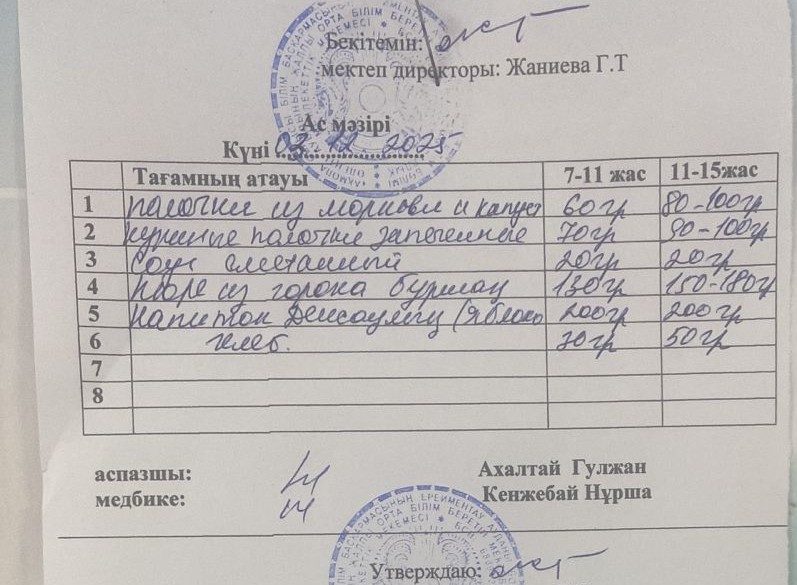 Бекітемін:
мектеп директоры: Жаниева Г.Т
Ас мәзірі
Күні 02.12.2025
Тағамның атауы 7-11 жас 11-15жас
1 палочки из моркови и капуст 60гр 80-100гр
2 куриные палочки запеченные 70гр 90-100гр
3 Соус сметанный 20гр 20гр
4 Пюре из гороха 130гр 150-180гр
5 Напиток Денсаулық (яблоко 200гр 200гр
6 хлеб. 30гр 50гр
7
8
аспазшы: Ахалтай Гулжан
медбике: Кенжебай Нұрша
Утверждаю: